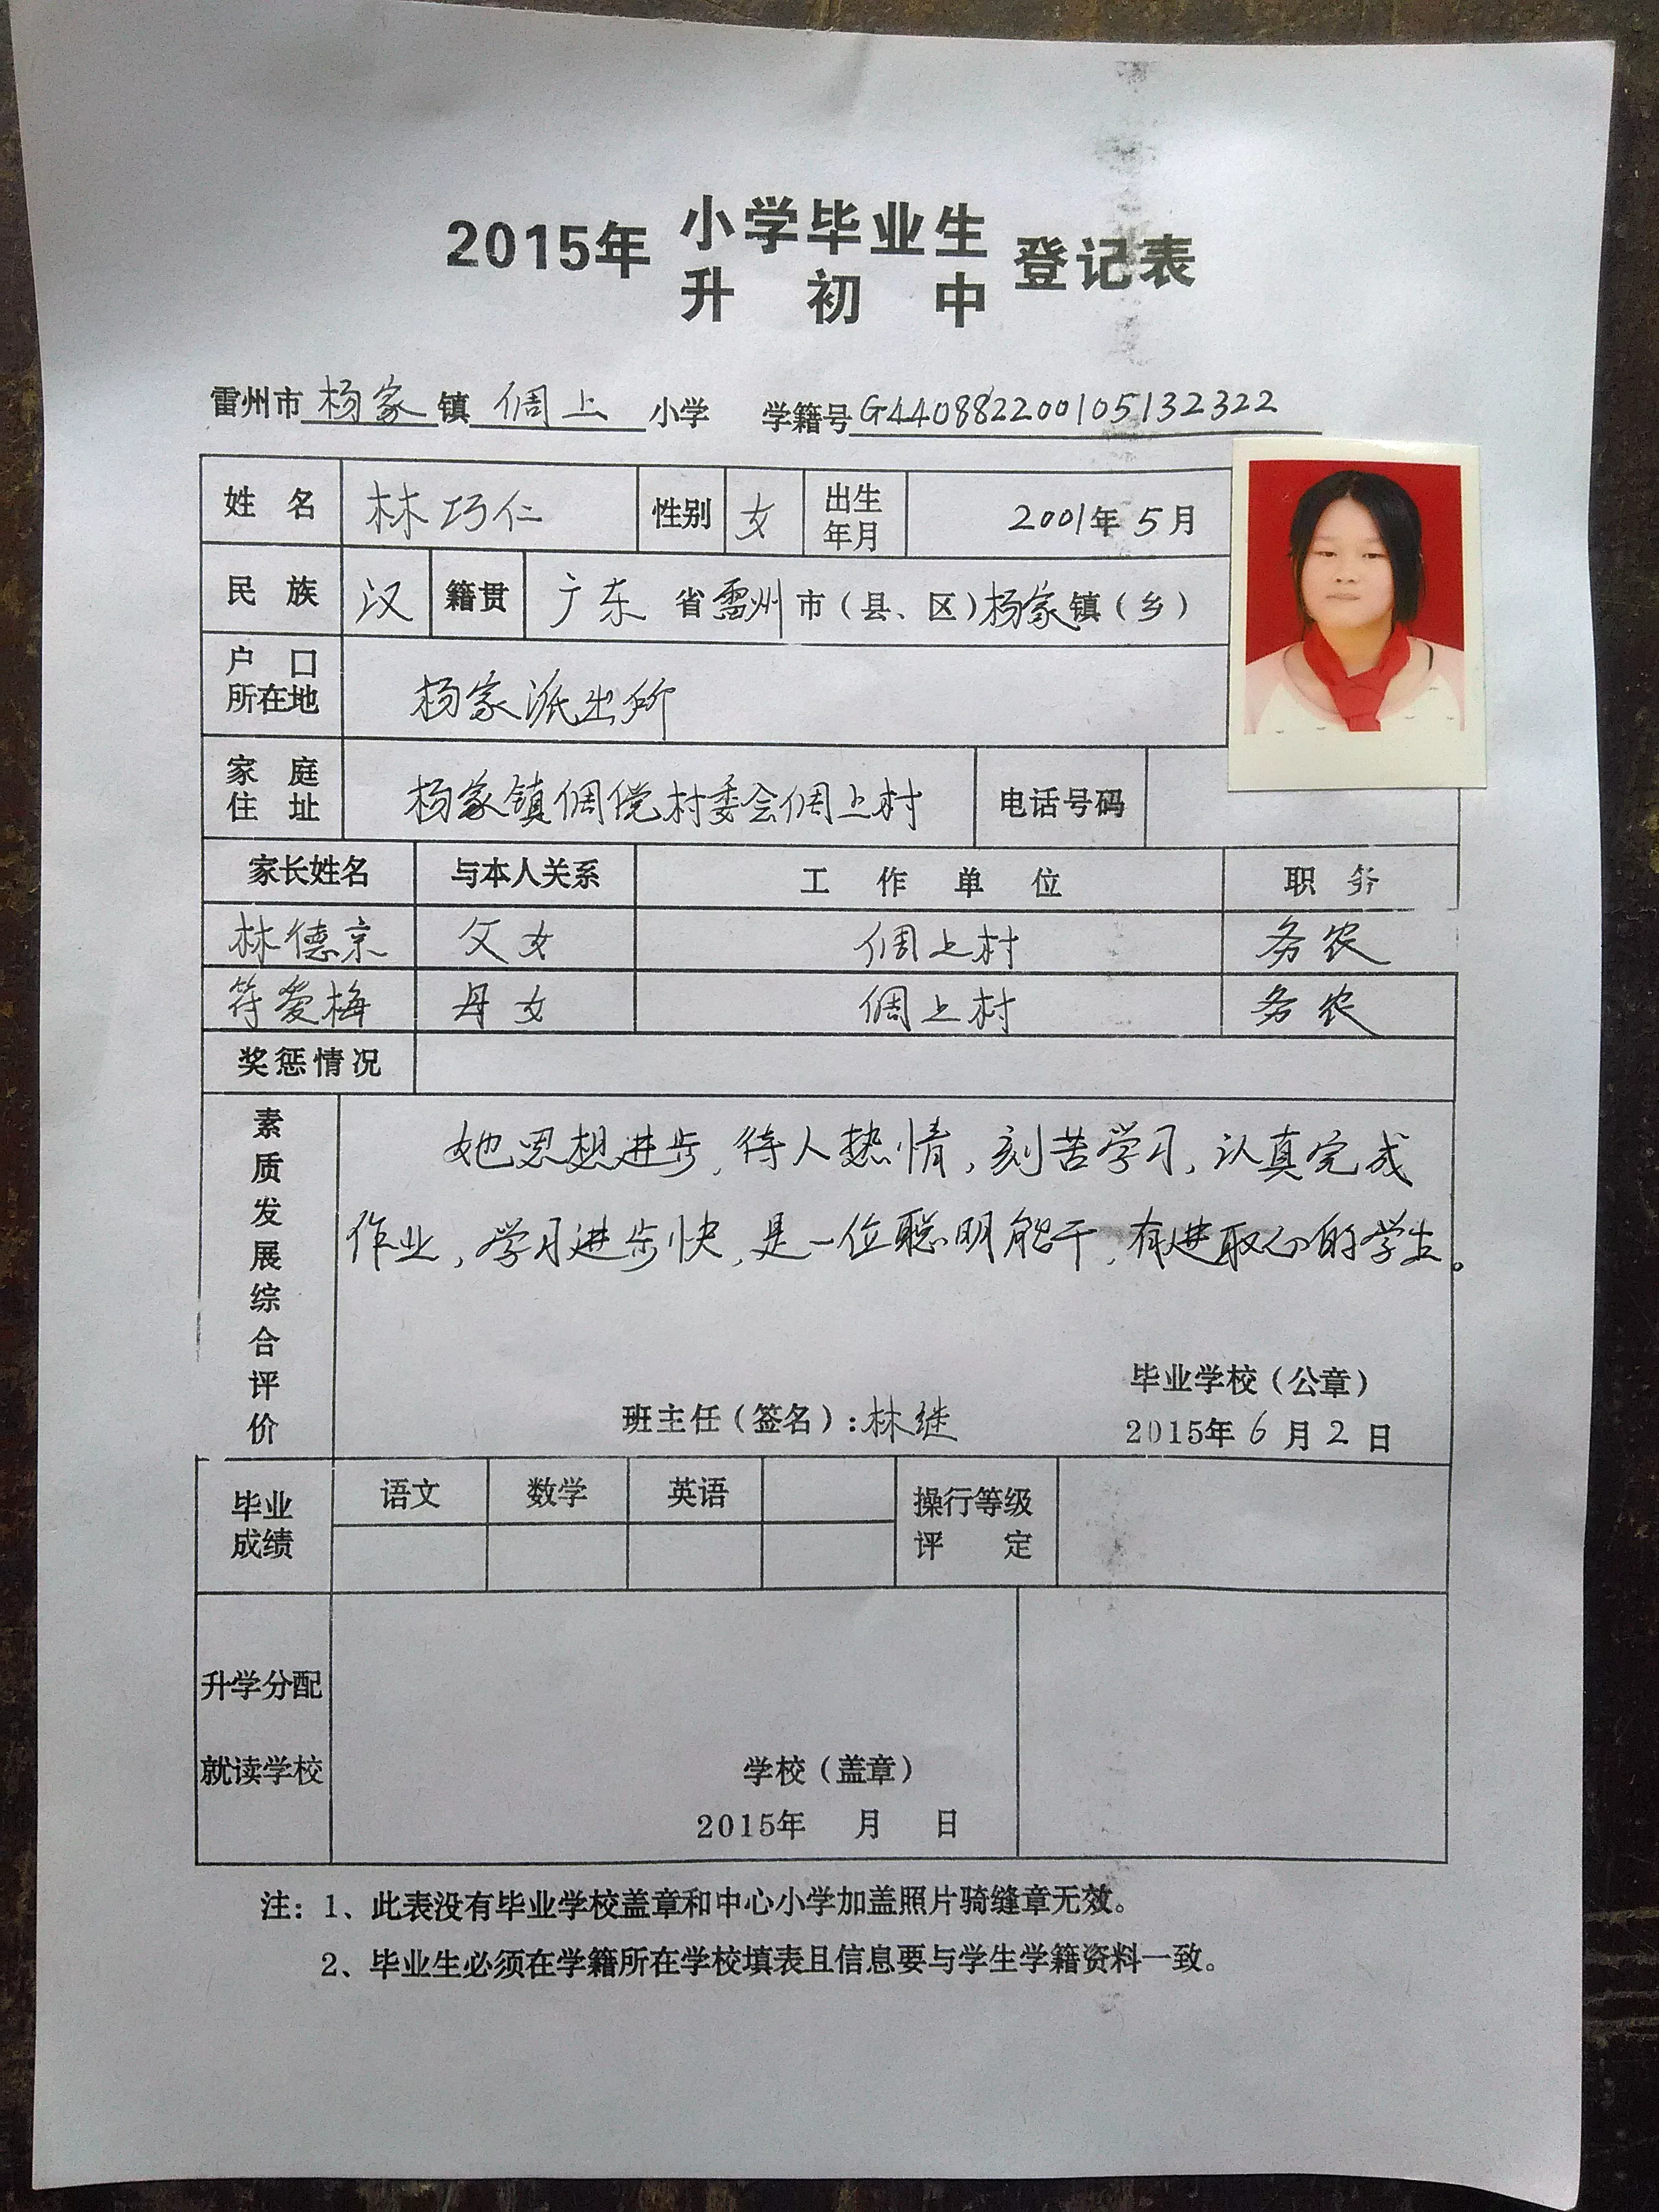 2015年 小学毕业生 登记表
升初中
雷州市 杨家 镇 倜上 小学 学籍号 G440882200105132322
姓名 林巧仁 性别 女 出生年月 2001年5月
民族 汉 籍贯 广东 省 雷州 市（县、区）杨家 镇（乡）
户口所在地 杨家派出所
家庭住址 杨家镇倜傥村委会倜上村 电话号码
家长姓名 与本人关系 工作单位 职务
林德京 父女 倜上村 务农
符爱梅 母女 倜上村 务农
奖惩情况
素质发展综合评价
她思想进步，待人热情，刻苦学习，认真完成
作业，学习进步快，是一位聪明能干，有进取心的学生。
毕业学校（公章）
班主任（签名）：林继 2015年6月2日
毕业成绩 语文 数学 英语 操行等级评定
升学分配
就读学校 学校（盖章）
2015年 月 日
注：1、此表没有毕业学校盖章和中心小学加盖照片骑缝章无效。
2、毕业生必须在学籍所在学校填表且信息要与学生学籍资料一致。